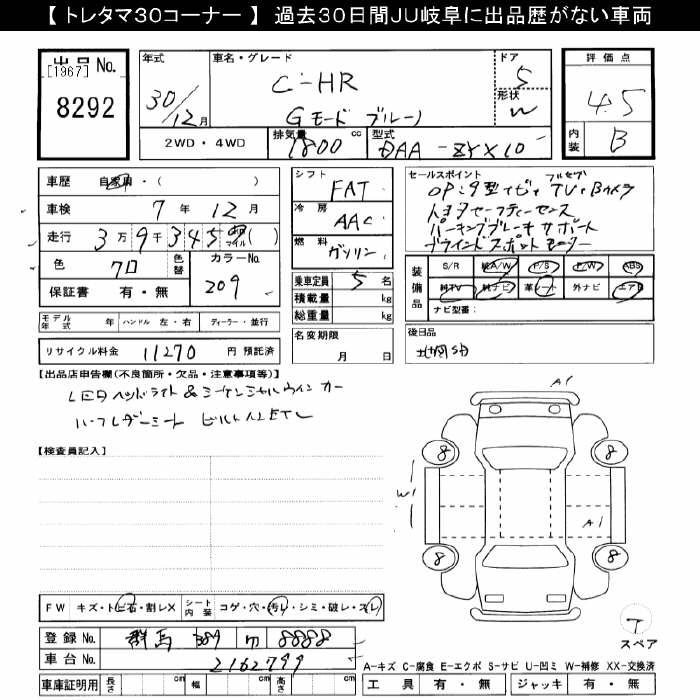 【 トレタマ30コーナー 】 過去30日間JU岐阜に出品歴がない車両
出品 No.
[1967]
8292
年式
30/12月
車名・グレード
C-HR
Gモード ブルーノ
ドア
5
形状
W
評価点
4.5
内装
B
2WD・4WD
排気量
1800 cc
型式
DAA-ZYX10
車歴 自家用・( )
車検 7年 12月
走行 3万9千345 マイル( )
色 クロ
色替
カラーNo.
209
保証書 有・無
シフト
FAT
冷房
AAC
燃料
ガソリン
乗車定員 5名
積載量 kg
総重量 kg
セールスポイント
フルセグ
OP:9型ナビ TV・Bカメラ
トヨタセーフティーセンス
パーキングブレーキサポート
ブラインドスポットモニター
装備品
S/R 純A/W P/S P/W ABS
純TV 純ナビ 革シート 外ナビ エアB
ナビ型番:
モデル年式 年
ハンドル 左・右
ディーラー・並行
名変期限
月 日
後日品
リサイクル料金 11270 円 預託済
【出品店申告欄(不良箇所・欠品・注意事項等)】
LEDヘッドライト&シーケンシャルウインカー
ハーフレザーシート ビルトインETC
【検査員記入】
A1
8
8
W1
A1
8
8
FW キズ・トビ石・割レX
シート内装 コゲ・穴・汚レ・シミ・破レ・スレ
登録 No. 群馬 301 8888
車台 No. 2162799
T
スペア
A-キズ C-腐食 E-エクボ S-サビ U-凹ミ W-補修 XX-交換済
車庫証明用 長さ cm 幅 cm 高さ cm
工具 有・無 ジャッキ 有・無